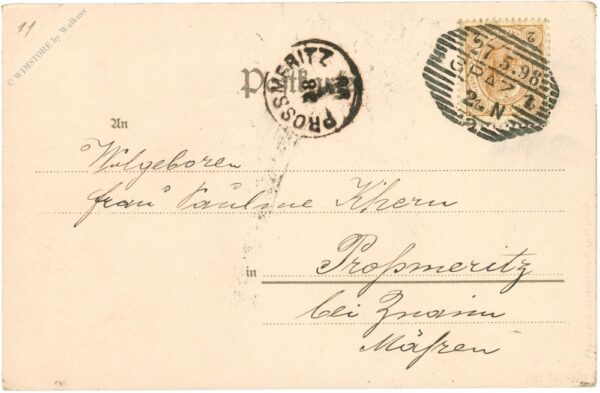 11
© WIMSTORE by Walkner
Postkarte
PROSSMERITZ
98
2
27.5.98
GRAZ
2 N
An
Wolgeboren
frau Pauline Khern
in Proßmeritz
bei Znaim
Mähren